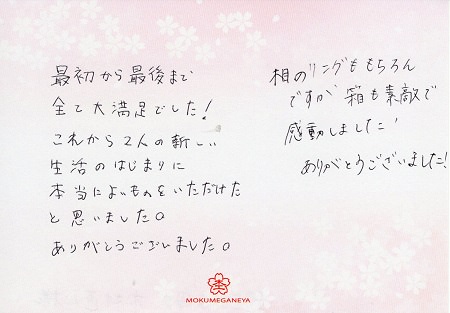 最初から最後まで
全て大満足でした!
これから2人の新しい
生活のはじまりに
本当によいものをいただけた
と思いました。
ありがとうございました。
相のリングももちろん
ですが 箱も素敵で
感動しました!
ありがとうございました!
MOKUMEGANEYA